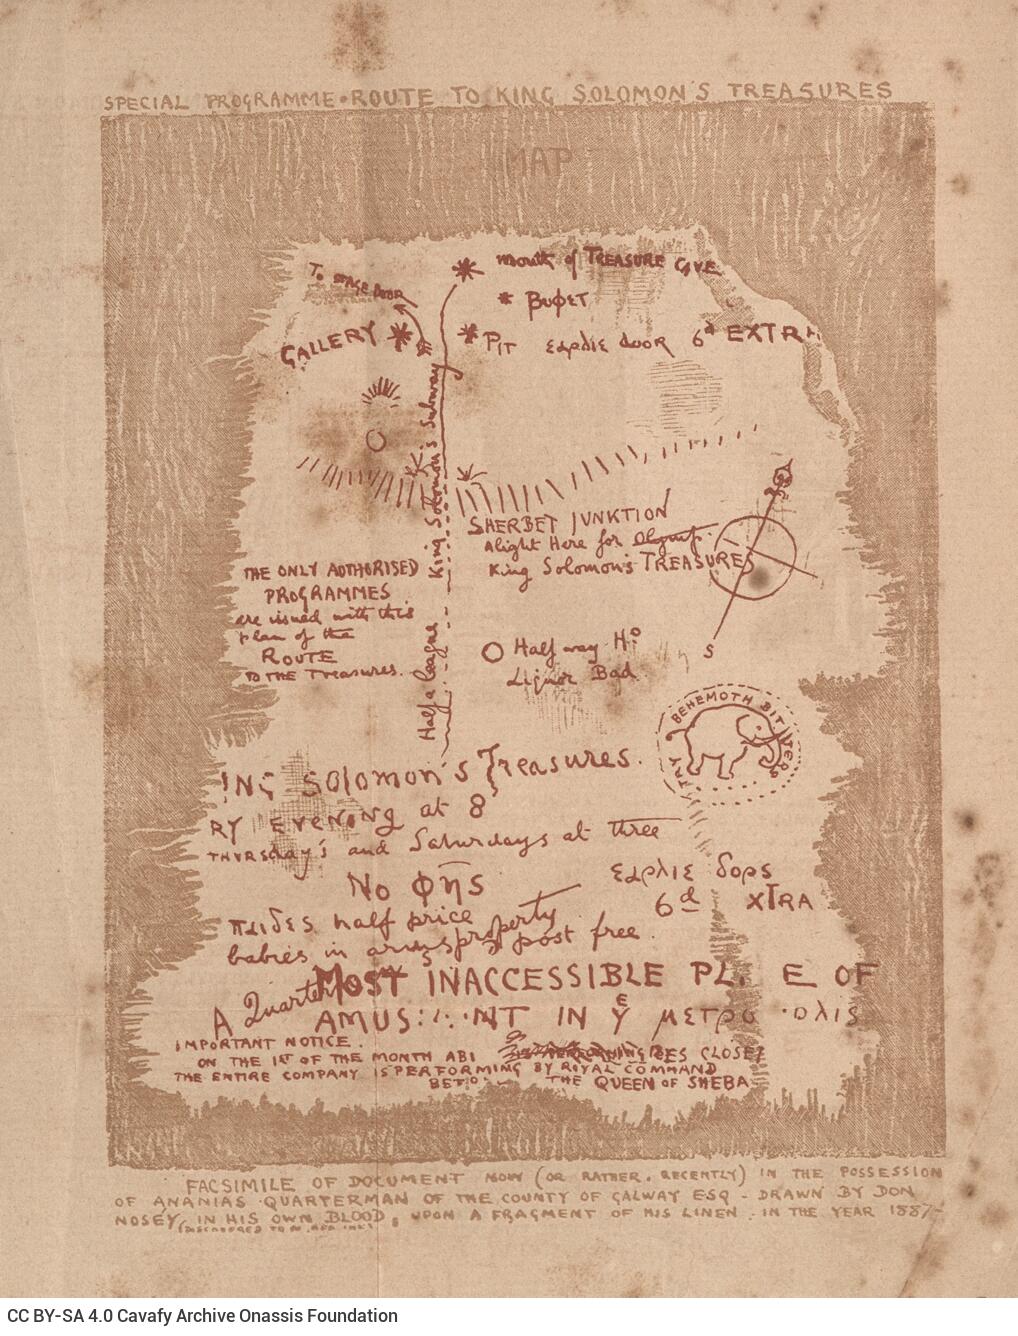 SPECIAL PROGRAMME • ROUTE TO KING SOLOMON'S TREASURES
MAP
mouth of TREASURE CAVE
To STAGE DOOR
ΒυφεΤ
GALLERY
PIT εαρλιε door 6d EXTRA
Half a league King Solomon's Subway
SHERBET JUNKTION
Alight Here for Olymp.
King Solomon's TREASURES
THE ONLY AUTHORISED
PROGRAMMES
are issued with this
plan of the
ROUTE
TO THE Treasures.
Half way Ho
Liquor Bad
S
BEHEMOTH BITTERS
TRY
ING Solomon's Treasures.
RY EVENING at 8
THURSday's and Saturdays at three
εαρλιε δορς
No φης
6d XTRA
παιδες half price
babies in arms property post free.
A Quarter
MOST INACCESSIBLE PL. E OF
AMUS NT IN YE μετρο ολις
IMPORTANT NOTICE.
ON THE 1ST OF THE MONTH ABI CLOSE
THE ENTIRE COMPANY IS PERFORMING BY ROYAL COMMAND
THE QUEEN OF SHEBA
FACSIMILE OF DOCUMENT NOW (OR RATHER. RECENTLY) IN THE POSSESSION
OF ANANIAS QUARTERMAN OF THE COUNTY OF GALWAY ESQ - DRAWN BY DON
NOSEY, IN HIS OWN BLOOD, UPON A FRAGMENT OF HIS LINEN. IN THE YEAR 1887-
CC BY-SA 4.0 Cavafy Archive Onassis Foundation